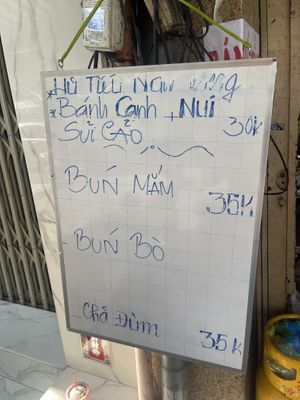 * Hủ Tiếu Nam Vang
* Bánh Canh + NUI
SủI CẢO 30K
BUń MẮM
35K
- BUń BÒ
- Chả Đùm 35K